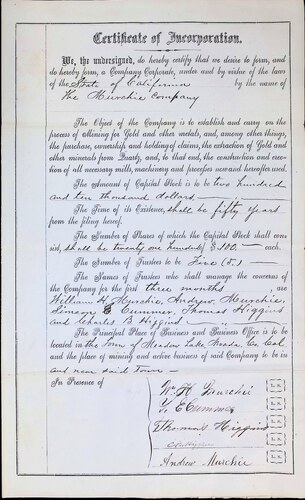 Certificate of Incorporation.
We, the undersigned, do hereby certify that we desire to form, and
do hereby form, a Company Corporate, under and by virtue of the laws
of the State of California by the name of
The Murchie Company
The Object of the Company is to establish and carry on the
process of Mining for Gold and other metals, and, among other things,
the purchase, ownership and holding of claims, the extraction of Gold and
other minerals from Quartz, and, to that end, the construction and erec-
tion of all necessary mills, machinery and processes now and hereafter used.
The Amount of Capital Stock is to be two hundred
and ten thousand dollars
The Time of its Existence, shall be fifty years
from the filing hereof.
The Number of Shares of which the Capital Stock shall con-
sist, shall be twenty one hundred $100 each.
The Number of Trustees to be Five (5.)
The Names of Trustees who shall manage the concerns of
the Company for the first three months, are
William H. Murchie, Andrew Murchie,
Simeon E Cummer, Thomas Higgins
and Charles B Higgins
The Principal Place of Business and Business Office is to be
located in the Town of Meadow Lake, Nevada Co. Cal
and the place of mining and active business of said Company to be in
and near said town
In Presence of
Wm H Murchie
S. E Cummer
Thomas Higgins
C B Higgins
Andrew Murchie